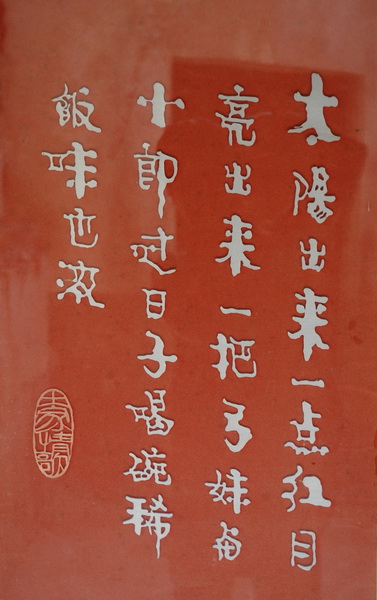 太陽出来一点红月
亮出来一把弓妹与
小郎过日子喝碗稀
飯味也浓